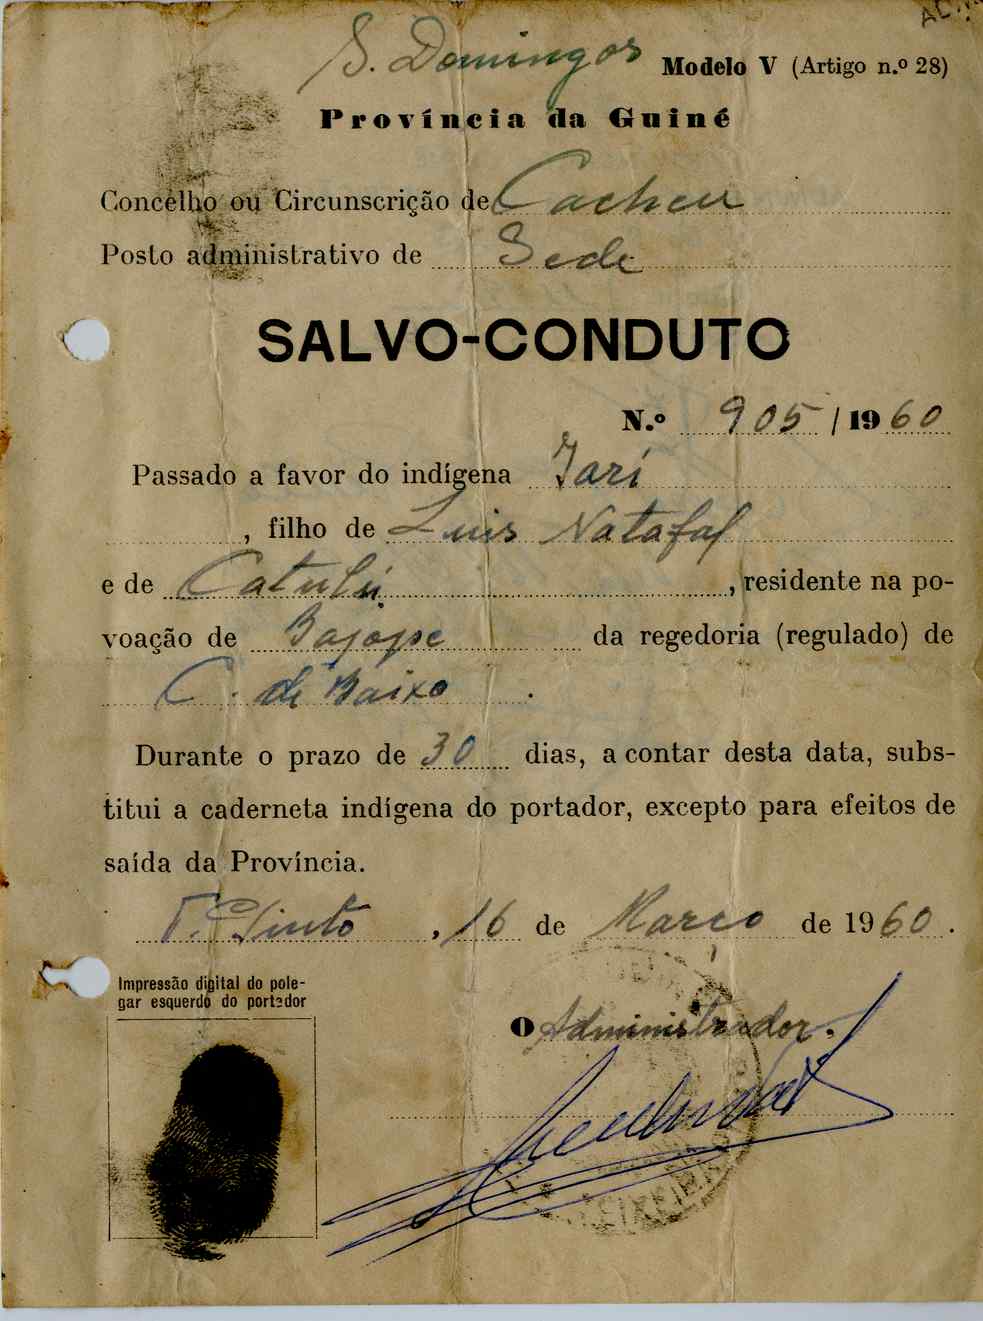 S. Domingos
Modelo V (Artigo n.º 28)
Província da Guiné
Concelho ou Circunscrição de Cacheu
Posto administrativo de Sede
SALVO-CONDUTO
N.º 905 / 1960
Passado a favor do indígena Jari
, filho de Luis Natafal
e de Catulú, residente na po-
voação de Bajope da regedoria (regulado) de
C. de Baixo.
Durante o prazo de 30 dias, a contar desta data, subs-
titui a caderneta indígena do portador, excepto para efeitos de
saída da Província.
T. Pinto, 16 de Março de 1960.
Impressão digital do pole-
gar esquerdo do portador
O Administrador,
TEIXEIRA